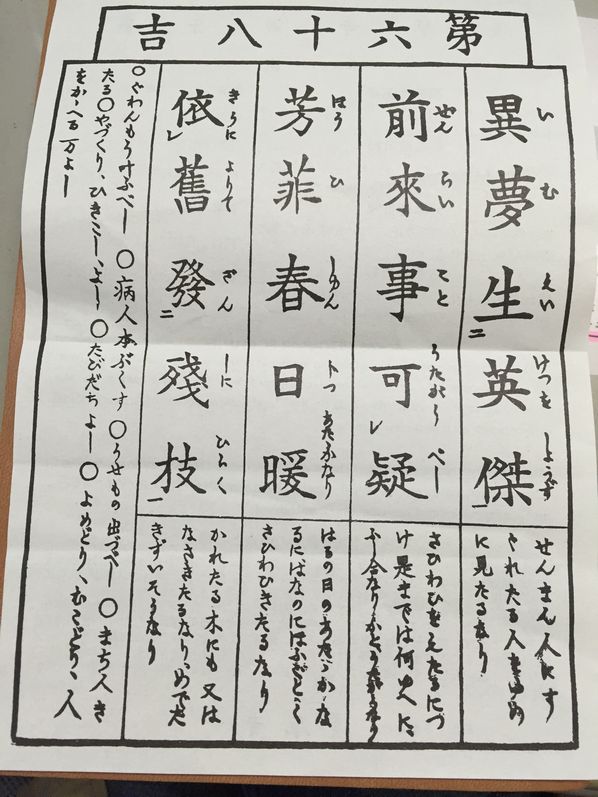 第六十八吉
異夢生二英傑一
い む えい けつを しやうず
せんまん人にす
ぐれたる人をゆめ
に見たるなり
前來事可レ疑
せん らい こと うたがう べし
さひわひをえたるにつ
け是までは何事に
ふし合なりしとうたがうなり
芳菲春日暖
はう ひ しゆん じつ あたゝかなり
はるの日のあたゝかな
るにばなのにほふごとく
さひわひきたるなり
依レ舊發二殘枝一
きうに よりて ざん しに ひらく
かれたる木にも又は
なさきたるなり、めでた
きずいそうなり
○ぐわんもうけふべし ○病人本ぶくす ○うせもの出づべし ○まち人き
たる○やづくり、ひきこし、よし ○たびだちよし ○よめどり、むこどり、人
をかゝへる万よし